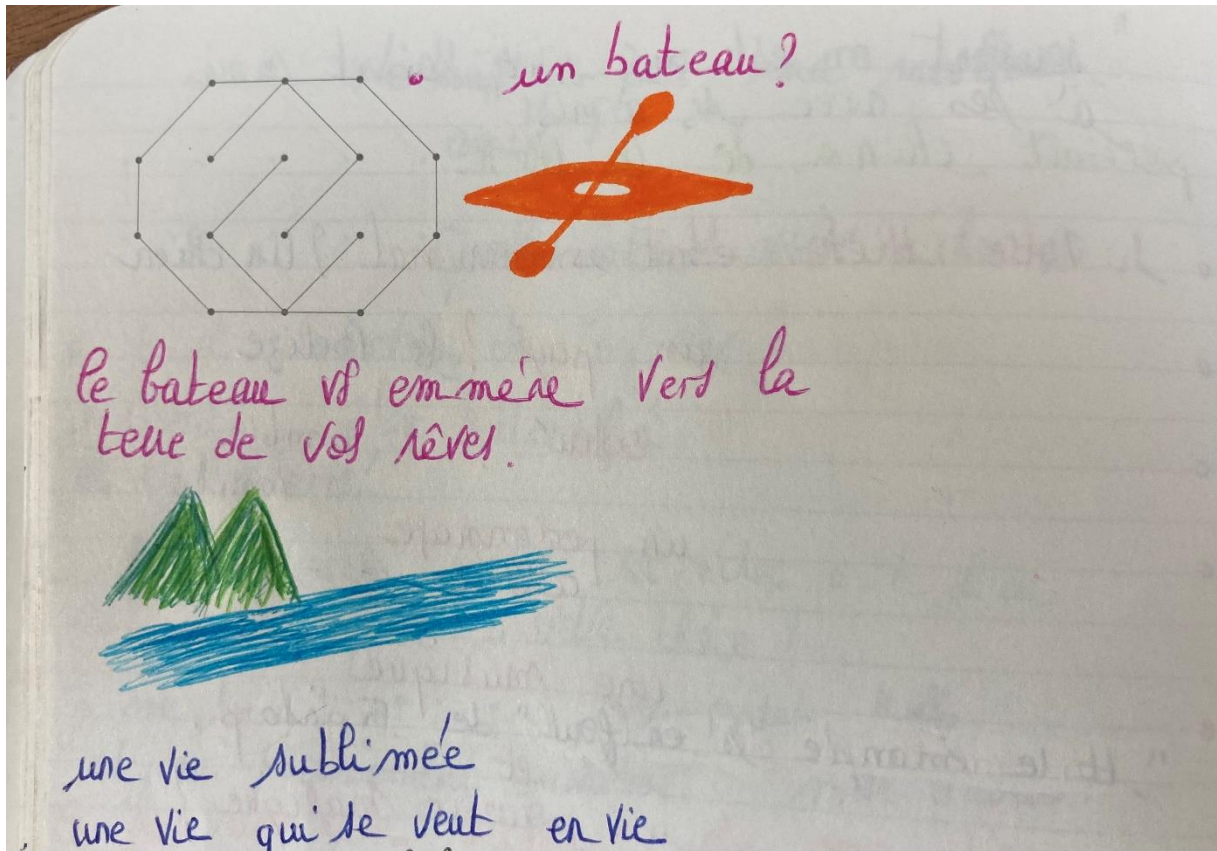 un bateau?
le bateau vs emmène vers la
terre de vos rêves.
une vie sublimée
une vie qui se veut en vie